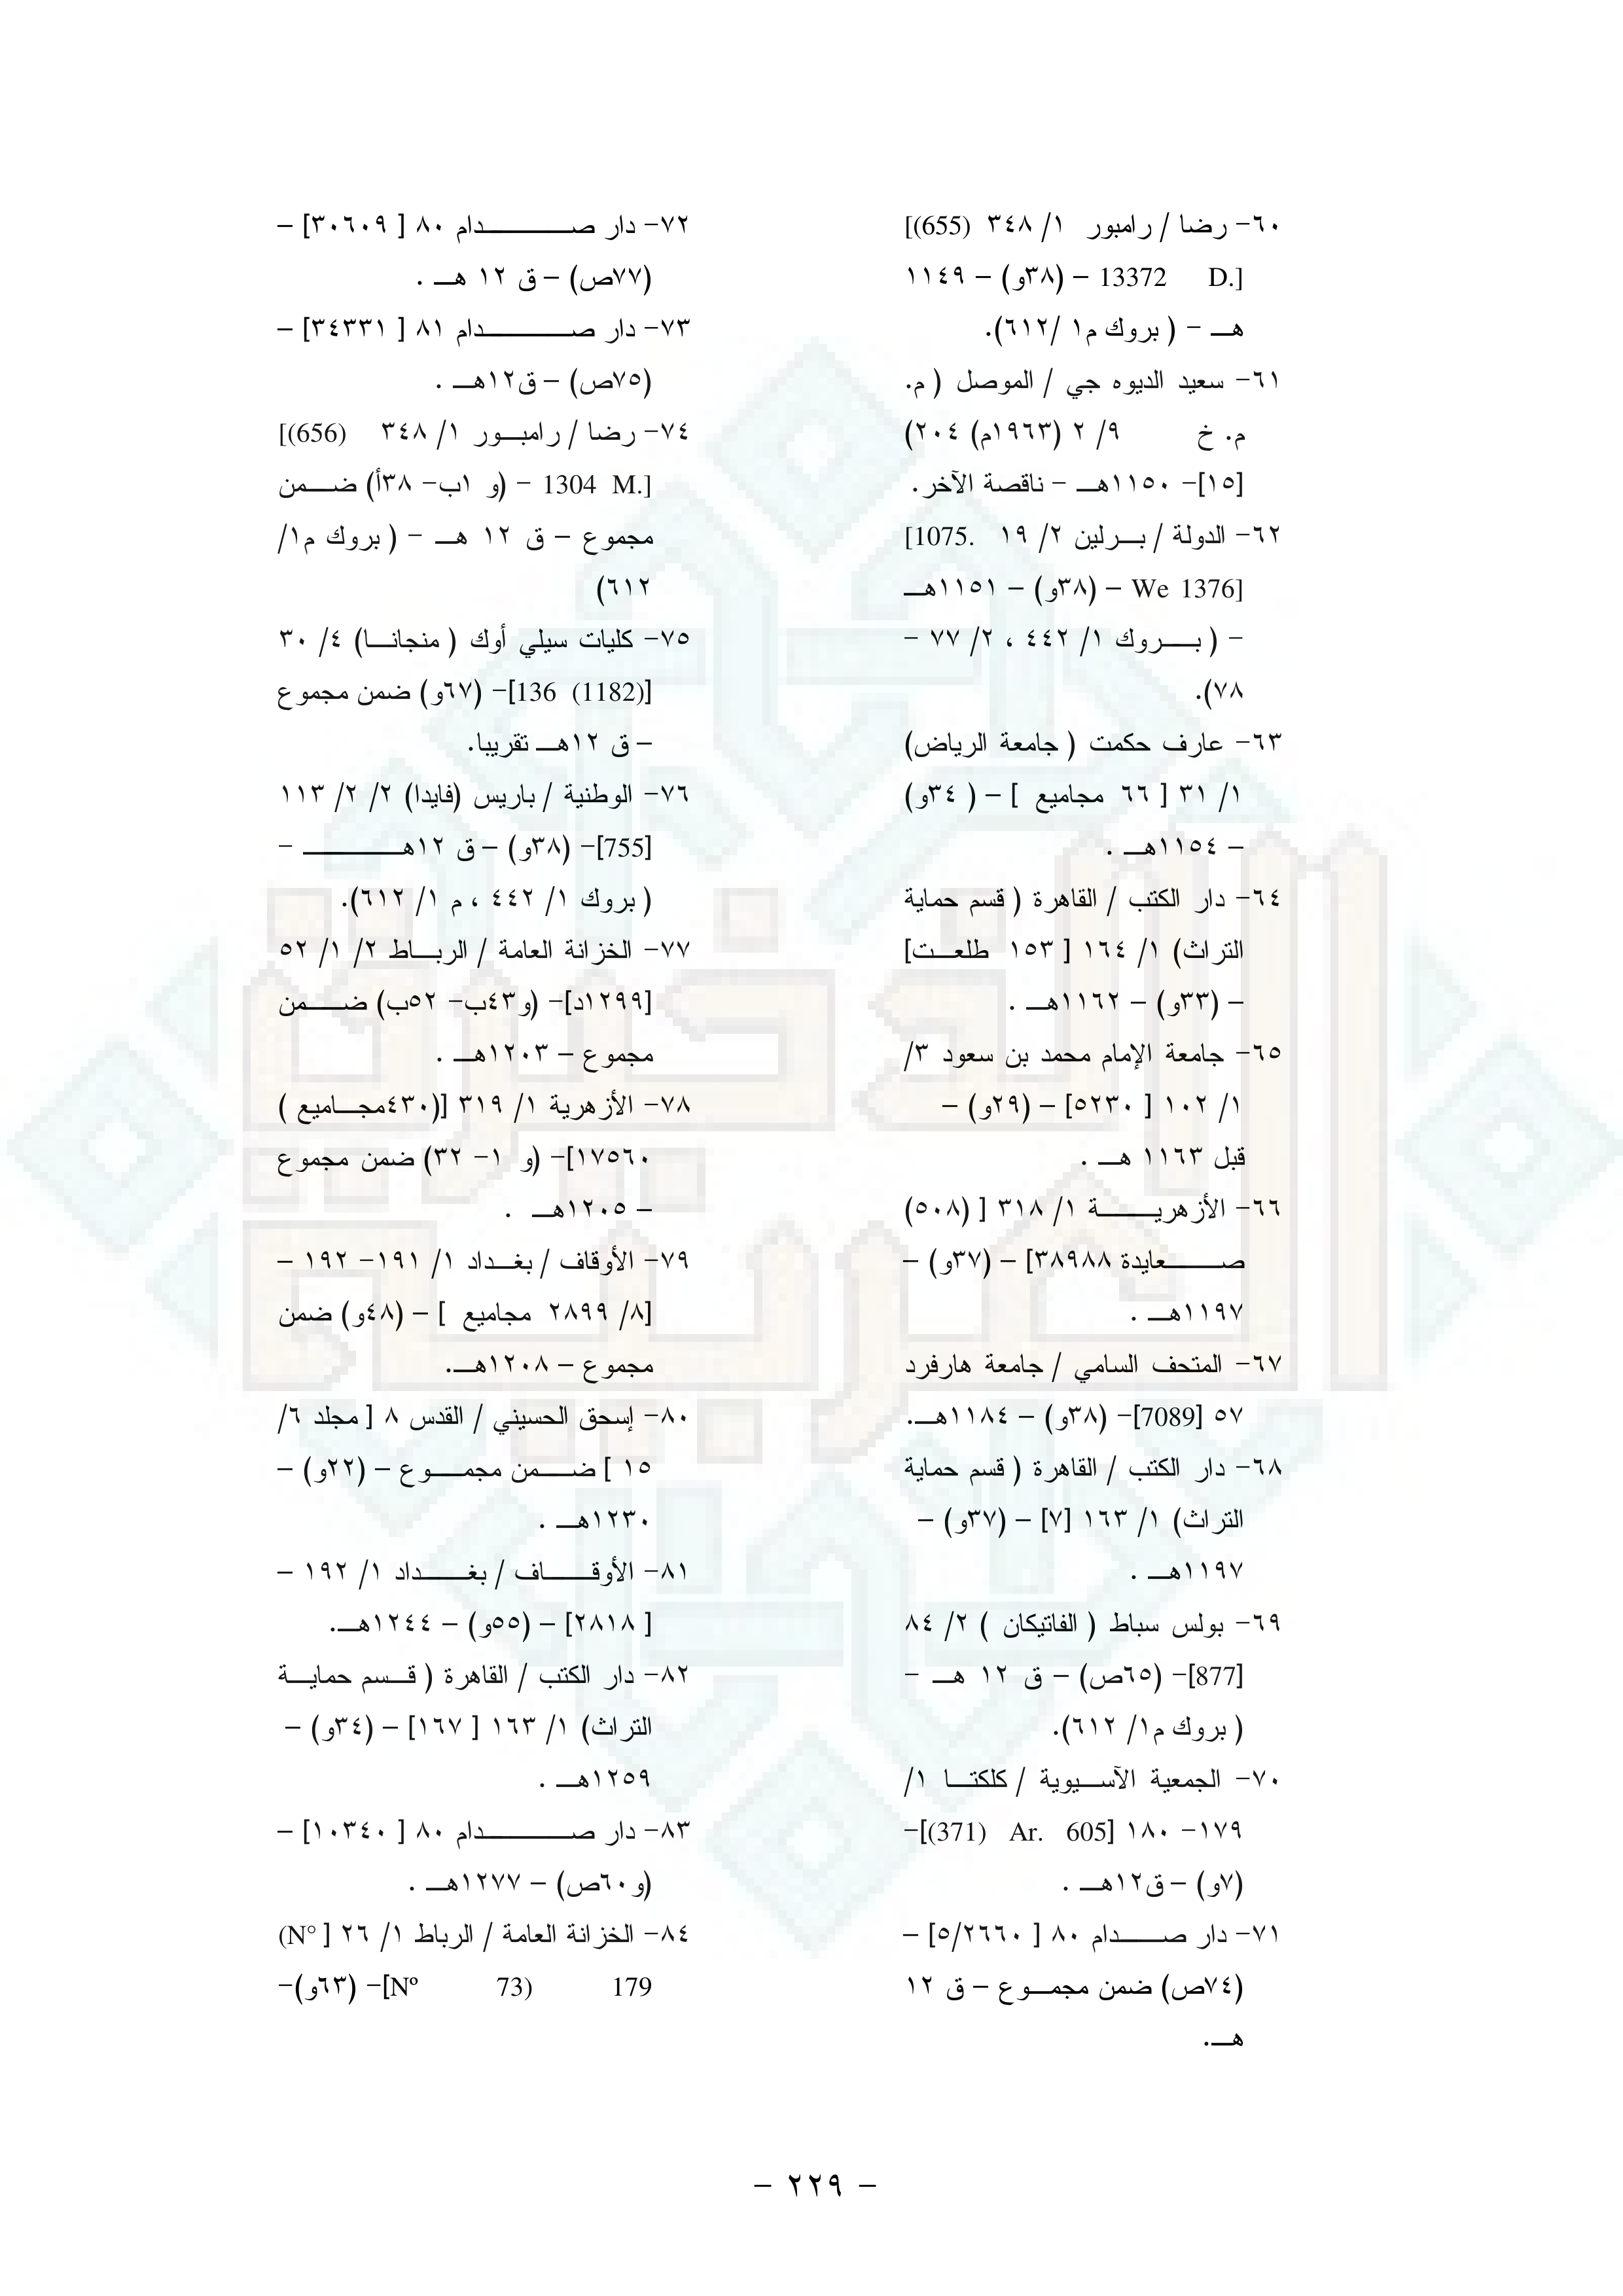 ٦٠- رضا / رامبور ١/ ٣٤٨ [(655)
D. 13372] – (٣٨و) – ١١٤٩
هـ – ( بروك م١ /٦١٢).
٦١- سعيد الديوه جي / الموصل ( م.
م. خ ٩/ ٢ (١٩٦٣م) ٢٠٤)
[١٥]- ١١٥٠هـ – ناقصة الآخر.
٦٢- الدولة / برلين ٢/ ١٩ [1075.
We 1376] – (٣٨و) – ١١٥١هـ
– ( بروك ١/ ٤٤٢ ، ٢/ ٧٧ –
٧٨).
٦٣- عارف حكمت ( جامعة الرياض)
١/ ٣١ [ ٦٦ مجاميع ] – ( ٣٤و)
– ١١٥٤هـ .
٦٤- دار الكتب / القاهرة ( قسم حماية
التراث) ١/ ١٦٤ [ ١٥٣ طلعت]
– (٣٣و) – ١١٦٢هـ .
٦٥- جامعة الإمام محمد بن سعود ٣/
١/ ١٠٢ [ ٥٢٣٠] – (٢٩و) –
قبل ١١٦٣ هـ .
٦٦- الأزهرية ١/ ٣١٨ [ (٥٠٨)
صعايدة ٣٨٩٨٨] – (٣٧و) –
١١٩٧هـ .
٦٧- المتحف السامي / جامعة هارفرد
٥٧ [7089]- (٣٨و) – ١١٨٤هـ.
٦٨- دار الكتب / القاهرة ( قسم حماية
التراث) ١/ ١٦٣ [٧] – (٣٧و) –
١١٩٧هـ .
٦٩- بولس سباط ( الفاتيكان ) ٢/ ٨٤
[877]- (٦٥ص) – ق ١٢ هـ –
( بروك م١/ ٦١٢).
٧٠- الجمعية الآسيوية / كلكتا ١/
١٧٩- ١٨٠ [(371) Ar. 605]-
(٧و) – ق١٢هـ .
٧١- دار صدام ٨٠ [ ٥/٢٦٦٠] –
(٧٤ص) ضمن مجموع – ق ١٢
هـ.
٧٢- دار صدام ٨٠ [ ٣٠٦٠٩] –
(٧٧ص) – ق ١٢ هـ .
٧٣- دار صدام ٨١ [ ٣٤٣٣١] –
(٧٥ص) – ق١٢هـ .
٧٤- رضا / رامبور ١/ ٣٤٨ [(656)
M. 1304] – (و ١ب- ٣٨أ) ضمن
مجموع – ق ١٢ هـ – ( بروك م١/
٦١٢)
٧٥- كليات سيلي أوك ( منجانا) ٤/ ٣٠
[136 (1182)]- (٦٧و) ضمن مجموع
– ق ١٢هـ تقريبا.
٧٦- الوطنية / باريس (فايدا) ٢/ ٢/ ١١٣
[755]- (٣٨و) – ق ١٢هـ –
( بروك ١/ ٤٤٢ ، م ١/ ٦١٢).
٧٧- الخزانة العامة / الرباط ٢/ ١/ ٥٢
[١٢٩٩د]- (و٤٣ب- ٥٢ب) ضمن
مجموع – ١٢٠٣هـ .
٧٨- الأزهرية ١/ ٣١٩ [(٤٣٠مجاميع )
١٧٥٦٠]- (و ١- ٣٢) ضمن مجموع
– ١٢٠٥هـ .
٧٩- الأوقاف / بغداد ١/ ١٩١- ١٩٢ –
[٨/ ٢٨٩٩ مجاميع ] – (٤٨و) ضمن
مجموع – ١٢٠٨هـ.
٨٠- إسحق الحسيني / القدس ٨ [ مجلد ٦/
١٥ ] ضمن مجموع – (٢٢و) –
١٢٣٠هـ .
٨١- الأوقاف / بغداد ١/ ١٩٢ –
[ ٢٨١٨] – (٥٥و) – ١٢٤٤هـ.
٨٢- دار الكتب / القاهرة ( قسم حماية
التراث) ١/ ١٦٣ [ ١٦٧] – (٣٤و) –
١٢٥٩هـ .
٨٣- دار صدام ٨٠ [ ١٠٣٤٠] –
(و٦٠ص) – ١٢٧٧هـ .
٨٤- الخزانة العامة / الرباط ١/ ٢٦ [ (N°
179 (73 Nº]- (٦٣و)-
– ٢٢٩ –